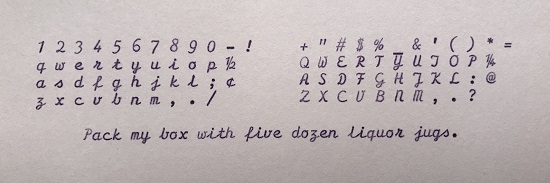 1 2 3 4 5 6 7 8 9 0 - ! + " # $ % _ & ' ( ) * =
q w e r t y u i o p ½ Q W E R T Y U I O P ¼
a s d f g h j k l ; ¢ A S D F G H J K L : @
z x c v b n m , . / Z X C V B N M , . ?
Pack my box with five dozen liquor jugs.